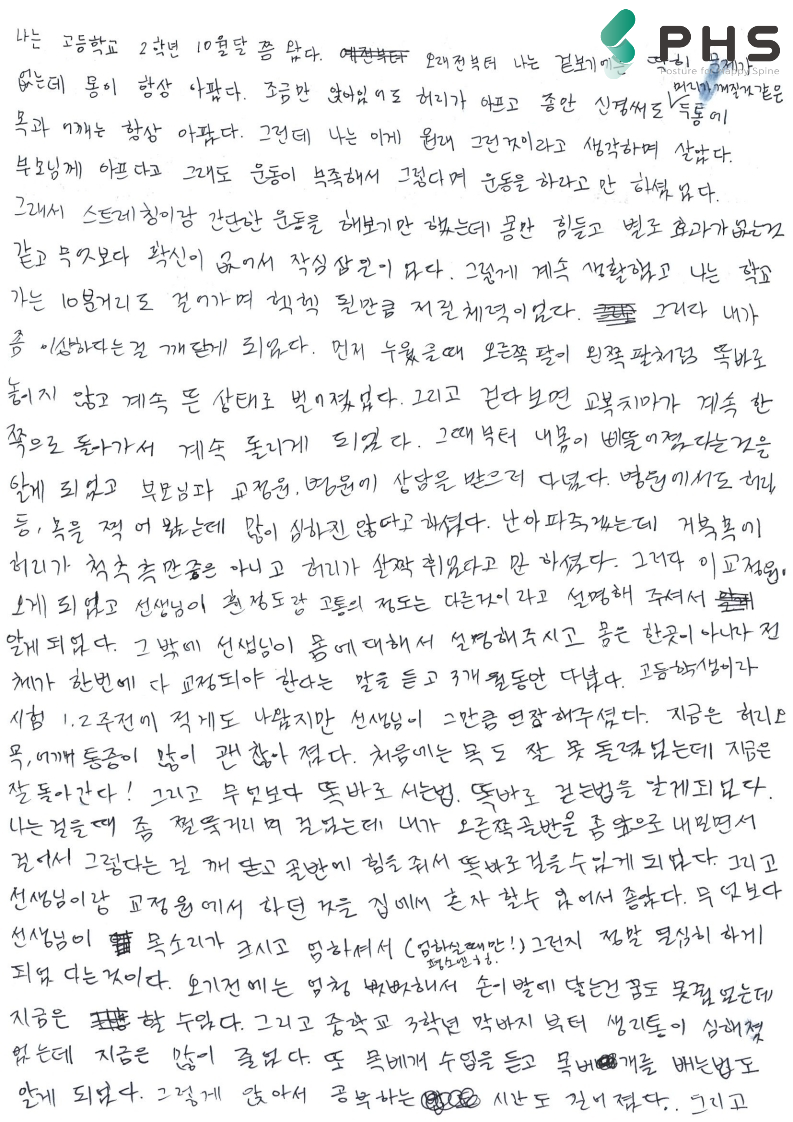 PHS
Posture for Happy Spine
나는 고등학교 2학년 10월달 쯤 왔다. 예전부터 오래전부터 나는 겉보기에는 딱히 문제가
없는데 몸이 항상 아팠다. 조금만 앉아있어도 허리가 아프고 좀만 신경써도 머리가 깨질것 같은 두통에
목과 어깨는 항상 아팠다. 그런데 나는 이게 원래 그런것이라고 생각하며 살았다.
부모님께 아프다고 그래도 운동이 부족해서 그렇다며 운동을 하라고만 하셨었다.
그래서 스트레칭이랑 간단한 운동을 해보기만 했는데 몸만 힘들고 별로 효과가 없는것
같고 무엇보다 확신이 없어서 작심삼일이었다. 그렇게 계속 생활했고 나는 학교
가는 10분거리도 걸어가며 헥헥 될만큼 저질체력이었다. 그러다 내가
좀 이상하다는걸 깨닫게 되었다. 먼저 누웠을때 오른쪽 팔이 왼쪽 팔처럼 똑바로
놓이지 않고 계속 뜬 상태로 벌어졌었다. 그리고 걷다보면 교복치마가 계속 한
쪽으로 돌아가서 계속 돌리게 되었다. 그때부터 내몸이 삐뚤어졌다는것을
알게 되었고 부모님과 교정원, 병원에 상담을 받으러 다녔다. 병원에서도 허리,
등, 목을 찍어 봤는데 많이 심하진 않다고 하셨다. 난 아파죽겠는데 거북목에
허리가 척추측만증은 아니고 허리가 살짝 휘었다고만 하셨다. 그러다 이 교정원에
오게 되었고 선생님이 휜정도랑 고통의 정도는 다른것이라고 설명해 주셔서
알게되었다. 그 밖에 선생님이 몸에 대해서 설명해주시고 몸은 한곳이 아니라 전
체가 한번에 다 교정되야 한다는 말을 듣고 3개월동안 다녔다. 고등학생이라
시험 1,2주전에 적게도 나왔지만 선생님이 그만큼 연장해주셨다. 지금은 허리와
목, 어깨 통증이 많이 괜찮아 졌다. 처음에는 목도 잘 못 돌렸었는데 지금은
잘 돌아간다! 그리고 무엇보다 똑바로 서는법, 똑바로 걷는법을 알게되었다.
나는 걸을때 좀 쩔뚝거리며 걸었는데 내가 오른쪽골반을 좀 앞으로 내밀면서
걸어서 그렇다는 걸 깨닫고 골반에 힘을 줘서 똑바로 걸을수 있게 되었다. 그리고
선생님이랑 교정원에서 하던 것을 집에서 혼자 할수 있어서 좋았다. 무엇보다
선생님이 목소리가 크시고 엄하셔서 (엄하실때만! 평소엔 ㅎㅎ) 그런지 정말 열심히 하게
되었다는것이다. 오기전에는 엄청 뻣뻣해서 손이 발에 닿는건 꿈도 못꿨었는데
지금은 할 수있다. 그리고 중학교 3학년 막바지부터 생리통이 심해졌
었는데 지금은 많이 줄었다. 또 목베개 수업을 듣고 목베개를 베는법도
알게 되었다. 그렇게 앉아서 공부하는 시간도 길어졌다. 그리고